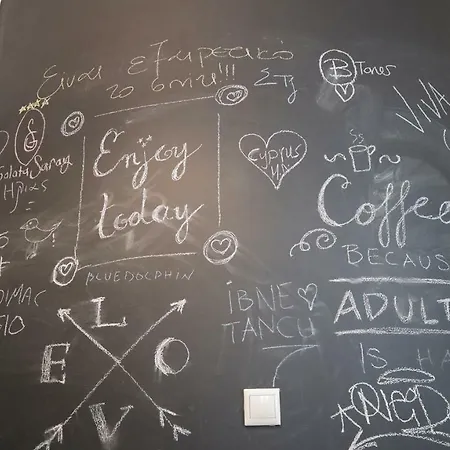 Είναι εξαιρετικό
το σπίτι!!!
B Tones
VIVA
Galata Saray
Ηλίας
Enjoy
today
Cyprus
Coffee
BECAUS
BLUEDOLPHIN
ADULT
IS HA
İBNE
TANCU
DIMAC
GIO
L
E O
V